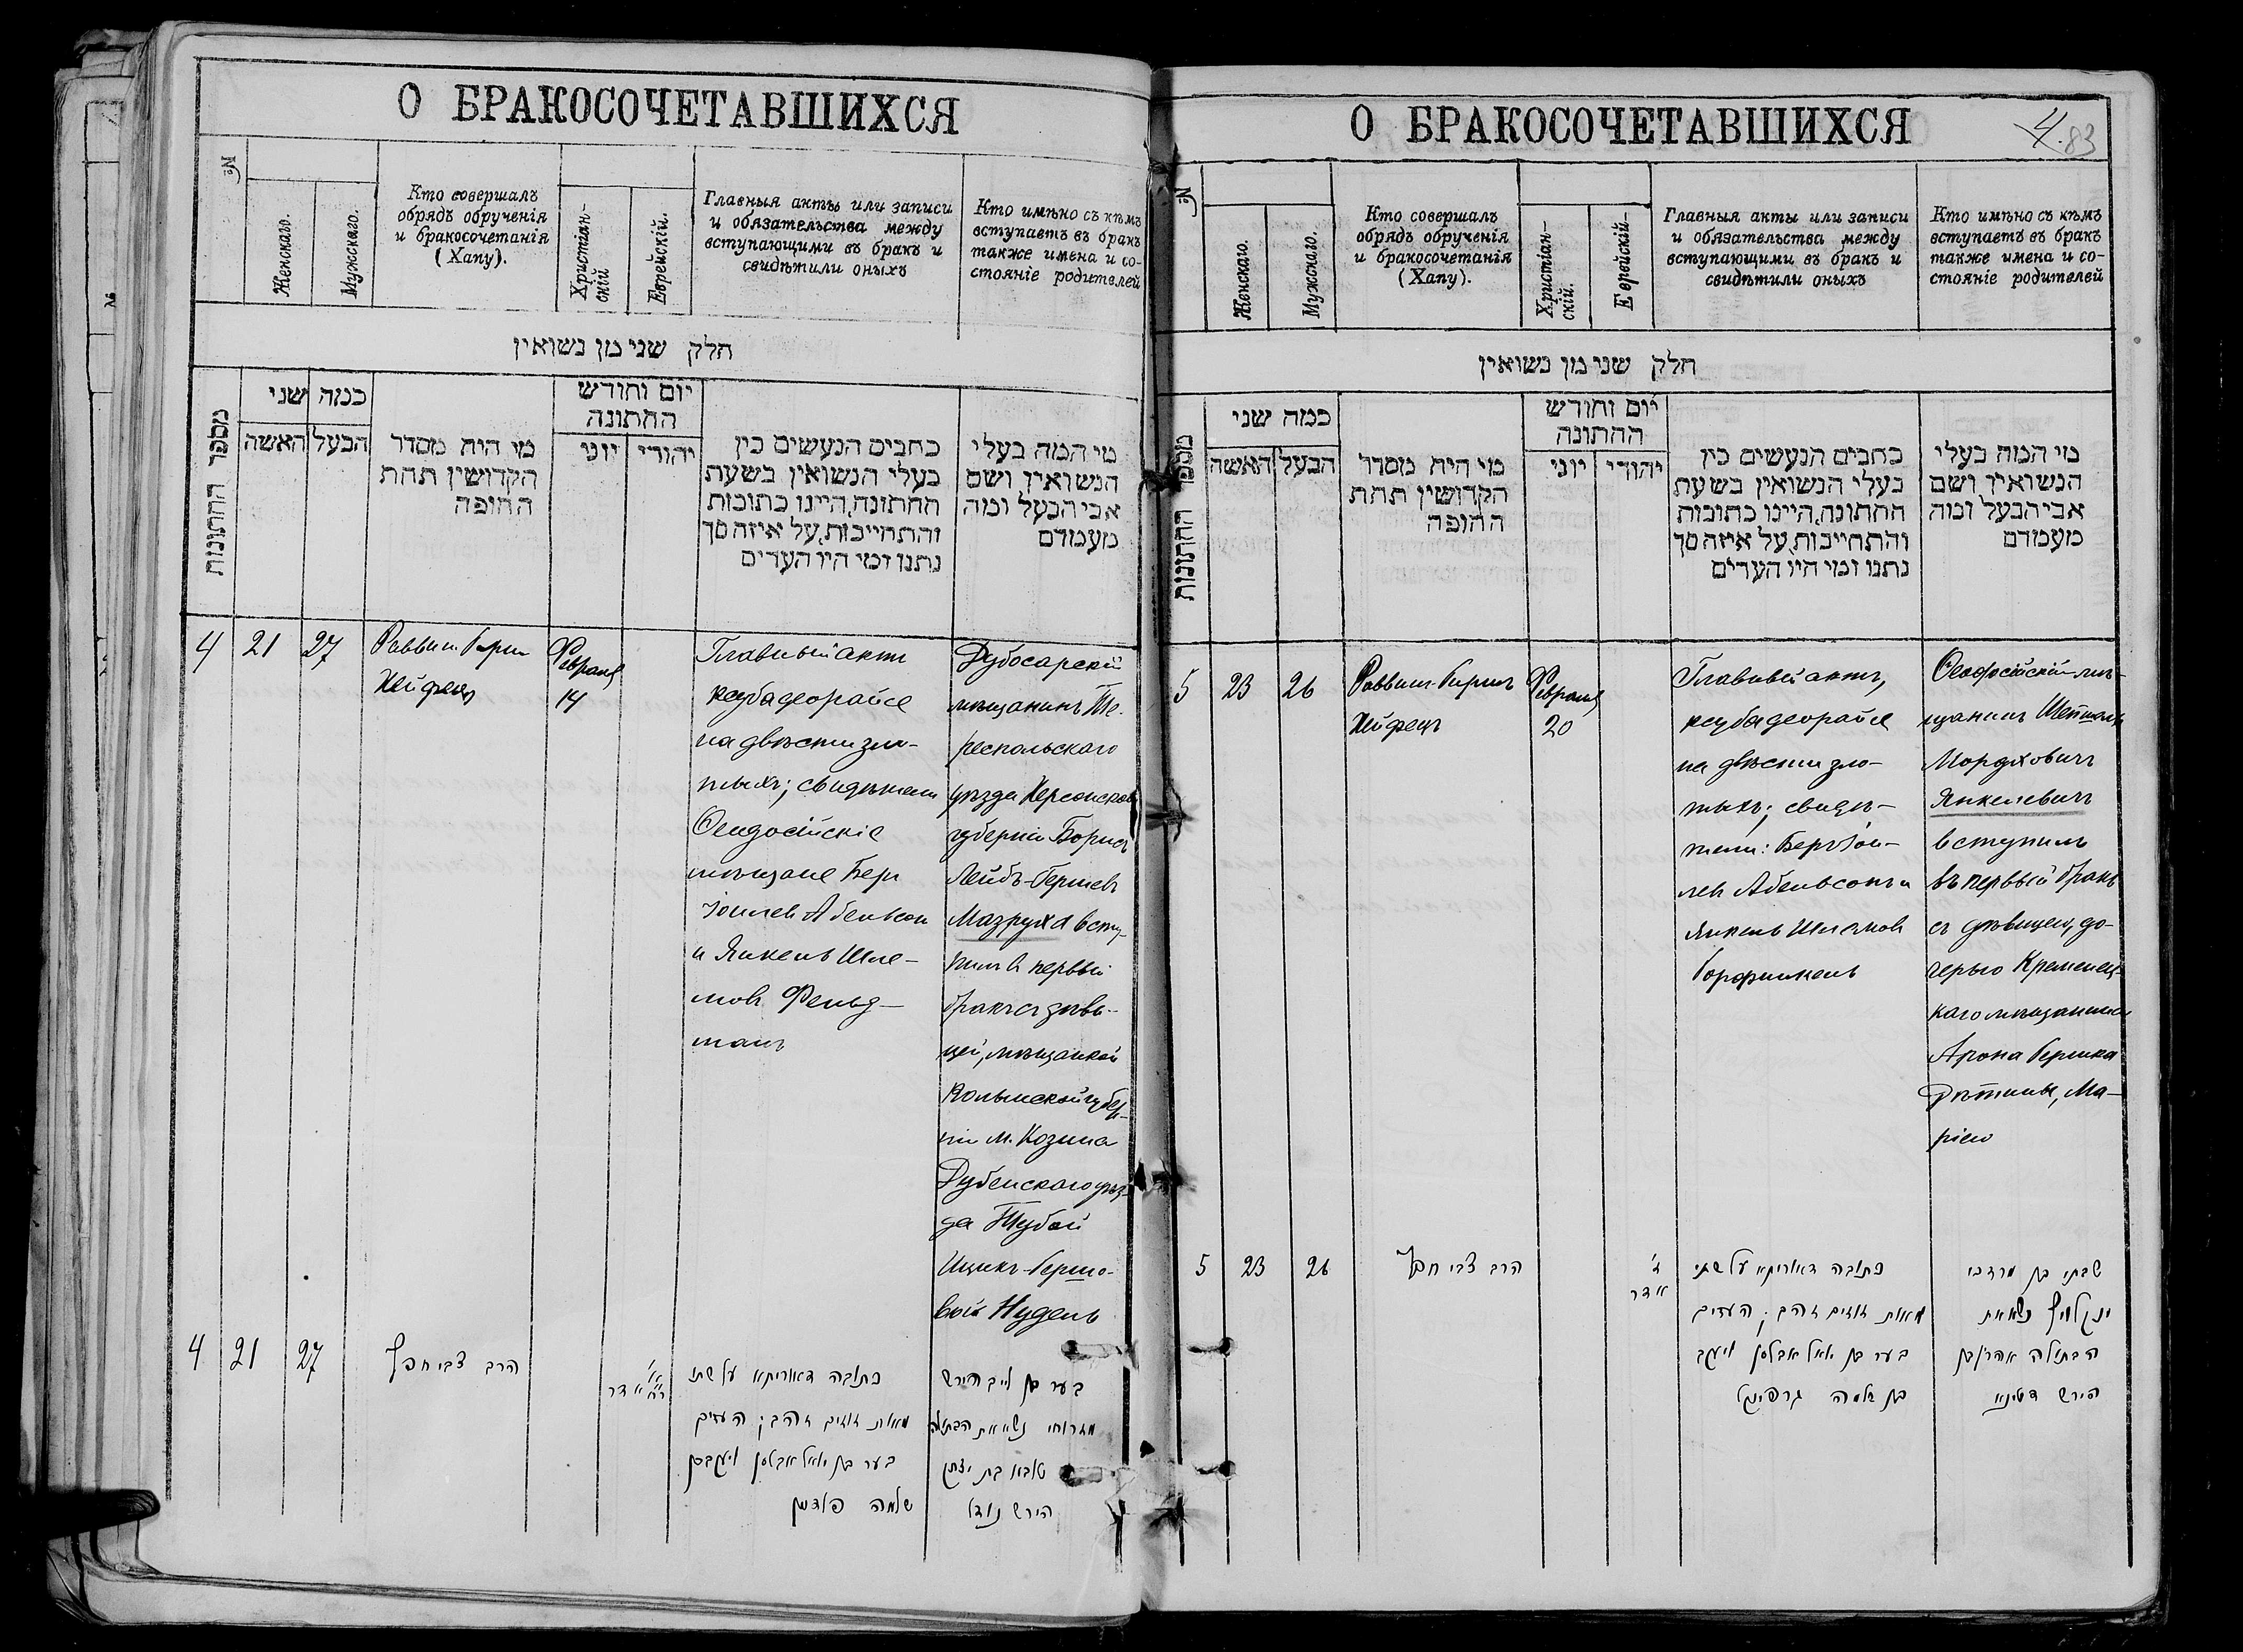 О БРАКОСОЧЕТАВШИХСЯ
№
Женскаго.
Мужскаго.
Кто совершалъ
обрядъ обрученія
и бракосочетанія
(Хапу).
Христіан-
скій
Еврейскій.
Главныя акты или записи
и обязательства между
вступающими въ бракъ и
свидѣтили оныхъ
Кто имѣно съ кѣмъ
вступаетъ въ бракъ
также имена и со-
стояніе родителей
חלק שני מן נשואין
מספר החתונות
כמה שני
האשה
הבעל
מי היה מסדר
הקדושין תחת
החופה
יום וחודש
החתונה
יוני
יהודי
כתבים הנעשים בין
בעלי הנשואין בשעת
החתונה, היינו כתובות
והתחייבות, על איזה סך
נתנו ומי היו העדים
מי המה בעלי
הנשואין ושם
אבי הבעל ומה
מעמדם
4
21
27
Раввин Гирш
Хейфецъ
Февраля
14
Главный актъ
ксубадеорайсе
на двѣсти зло-
тыхъ; свидѣтели
Ѳеодосійскіе
мѣщане Беръ
Іоилев Абельсон
и Янкель Шле-
мовъ Фельд-
манъ
Дубосарскій
мѣщанинъ Ти-
распольскаго
уѣзда Херсонской
губерніи Борисъ
Лейбъ-Гершевъ
Мазруха всту-
пилъ в первый
бракъ съ дѣви-
цей, мѣщанкой
Волынской губер-
ніи м. Козина
Дубенскаго уѣз-
да Тубой
Ицикъ-Гершо-
вой Нудель
4
21
27
הרב צבי חפץ
א'
ר״ח אדר
כתובה דאוריתא על שתי
מאות זוזים זהב; העדים
בער בן יואל אבלסן ויעקב בן
שלמה פלדמן
בער בן לייב הירש
מזרוחי נשא את הבתולה
טובא בת יצחק
הירש נודל
О БРАКОСОЧЕТАВШИХСЯ
4.
83
№
Женскаго.
Мужскаго.
Кто совершалъ
обрядъ обрученія
и бракосочетанія
(Хапу).
Христіан-
скій.
Еврейскій-
Главныя акты или записи
и обязательства между
вступающими въ бракъ и
свидѣтили оныхъ
Кто имѣно съ кѣмъ
вступаетъ въ бракъ
также имена и со-
стояніе родителей
חלק שני מן נשואין
מספר החתונות
כמה שני
האשה
הבעל
מי היה מסדר
הקדושין תחת
החופה
יום וחודש
החתונה
יוני
יהודי
כתבים הנעשים בין
בעלי הנשואין בשעת
החתונה, היינו כתובות
והתחייבות, על איזה סך
נתנו ומי היו העדים
מי המה בעלי
הנשואין ושם
אבי הבעל ומה
מעמדם
5
23
26
Раввинъ Гиршъ
Хейфецъ
Февраля
20
Главный актъ,
ксубадеорайсе
на двѣсти зло-
тыхъ; свидѣ-
тели: Беръ Іои-
лев Абельсонъ и
Янкель Шлемов
Горфинкель
Ѳеодосійскій мѣ-
щанинъ
Мордковичъ
Янкелевичъ
вступилъ
въ первый бракъ
съ дѣвицею, до-
черью Кременец-
каго мѣщанина
Арона Гершка
Дѣтины, Ма-
ріею
5
23
26
הרב צבי חפץ
ז'
אדר
כתובה דאוריתא על שתי
מאות זוזים זהב; העדים
בער בן יואל אבלסן ויעקב
בן שלמה גרפינקל
שבתי בן מרדכי
ינקלויץ נשא את
הבתולה אהרן בן
הירש דטינא